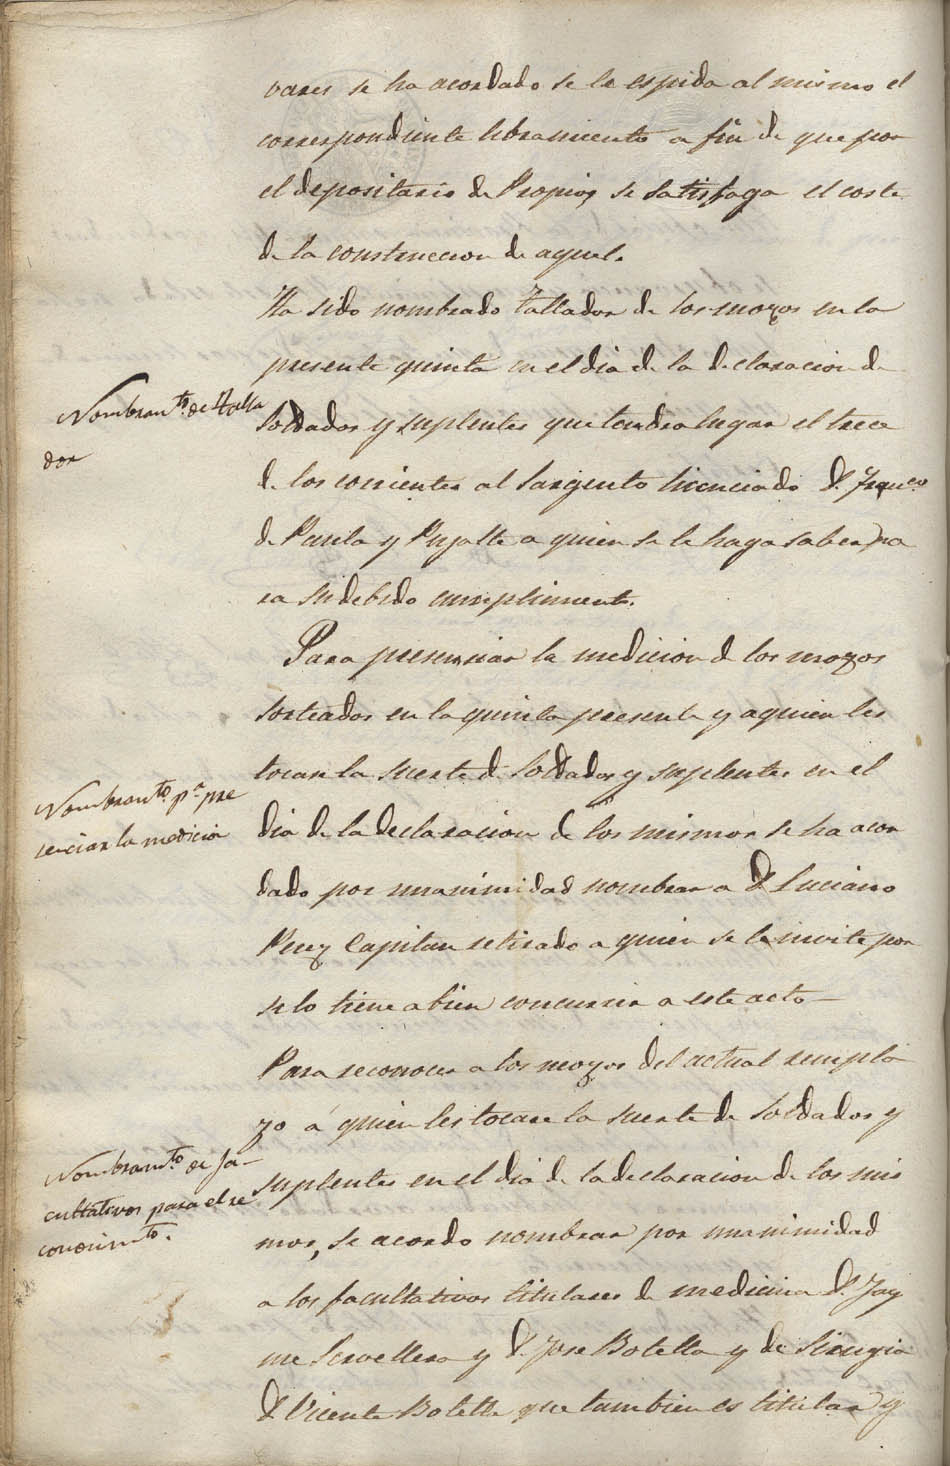 vares se ha acordado se le espida al mismo el
correspondiente libramiento a fin de que por
el depositario de Propios se satisfaga el coste
de la construccion de aquel.
Nombramto. de Talla
dor
Ha sido nombrado Tallador de los mozos en la
presente quinta en el dia de la declaracion de
Soldados y suplentes que tendra lugar el trece
de los corrientes al Sargento licenciado D. Franco.
de Paula y Pujalte a quien se le haga saber pa
ra su debido cumplimiento.
Nombramto. pa. pre
senciar la medicion
Para presenciar la medicion de los mozos
sorteados en la quinta presente y a quien les
tocare la suerte de Soldados y suplentes en el
dia de la declaracion de los mismos se ha acor
dado por unanimidad nombrar a D. Luciano
Perez Capitan retirado a quien se le invite por
si lo tiene a bien concurrir a este acto—
Nombramto. de fa-
cultativos para el re
conocimto.
Para reconocer a los mozos del actual rempla
zo á quien les tocare la suerte de Soldados y
suplentes en el dia de la declaracion de los mis
mos, se acordo nombrar por unanimidad
a los facultativos titulares de medicina D. Jay
me Servellera y D. Jose Botella y de Sirugia
D. Vicente Botella que tambien es titular y